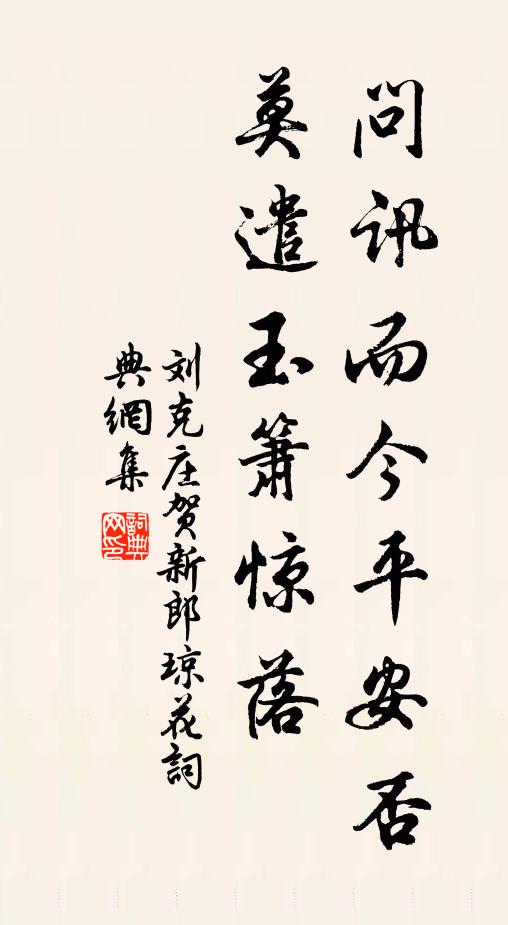 问讯而今平安否
莫遣玉箫惊落
刘克庄贺新郎琼花詞
典網集
詞典
网印